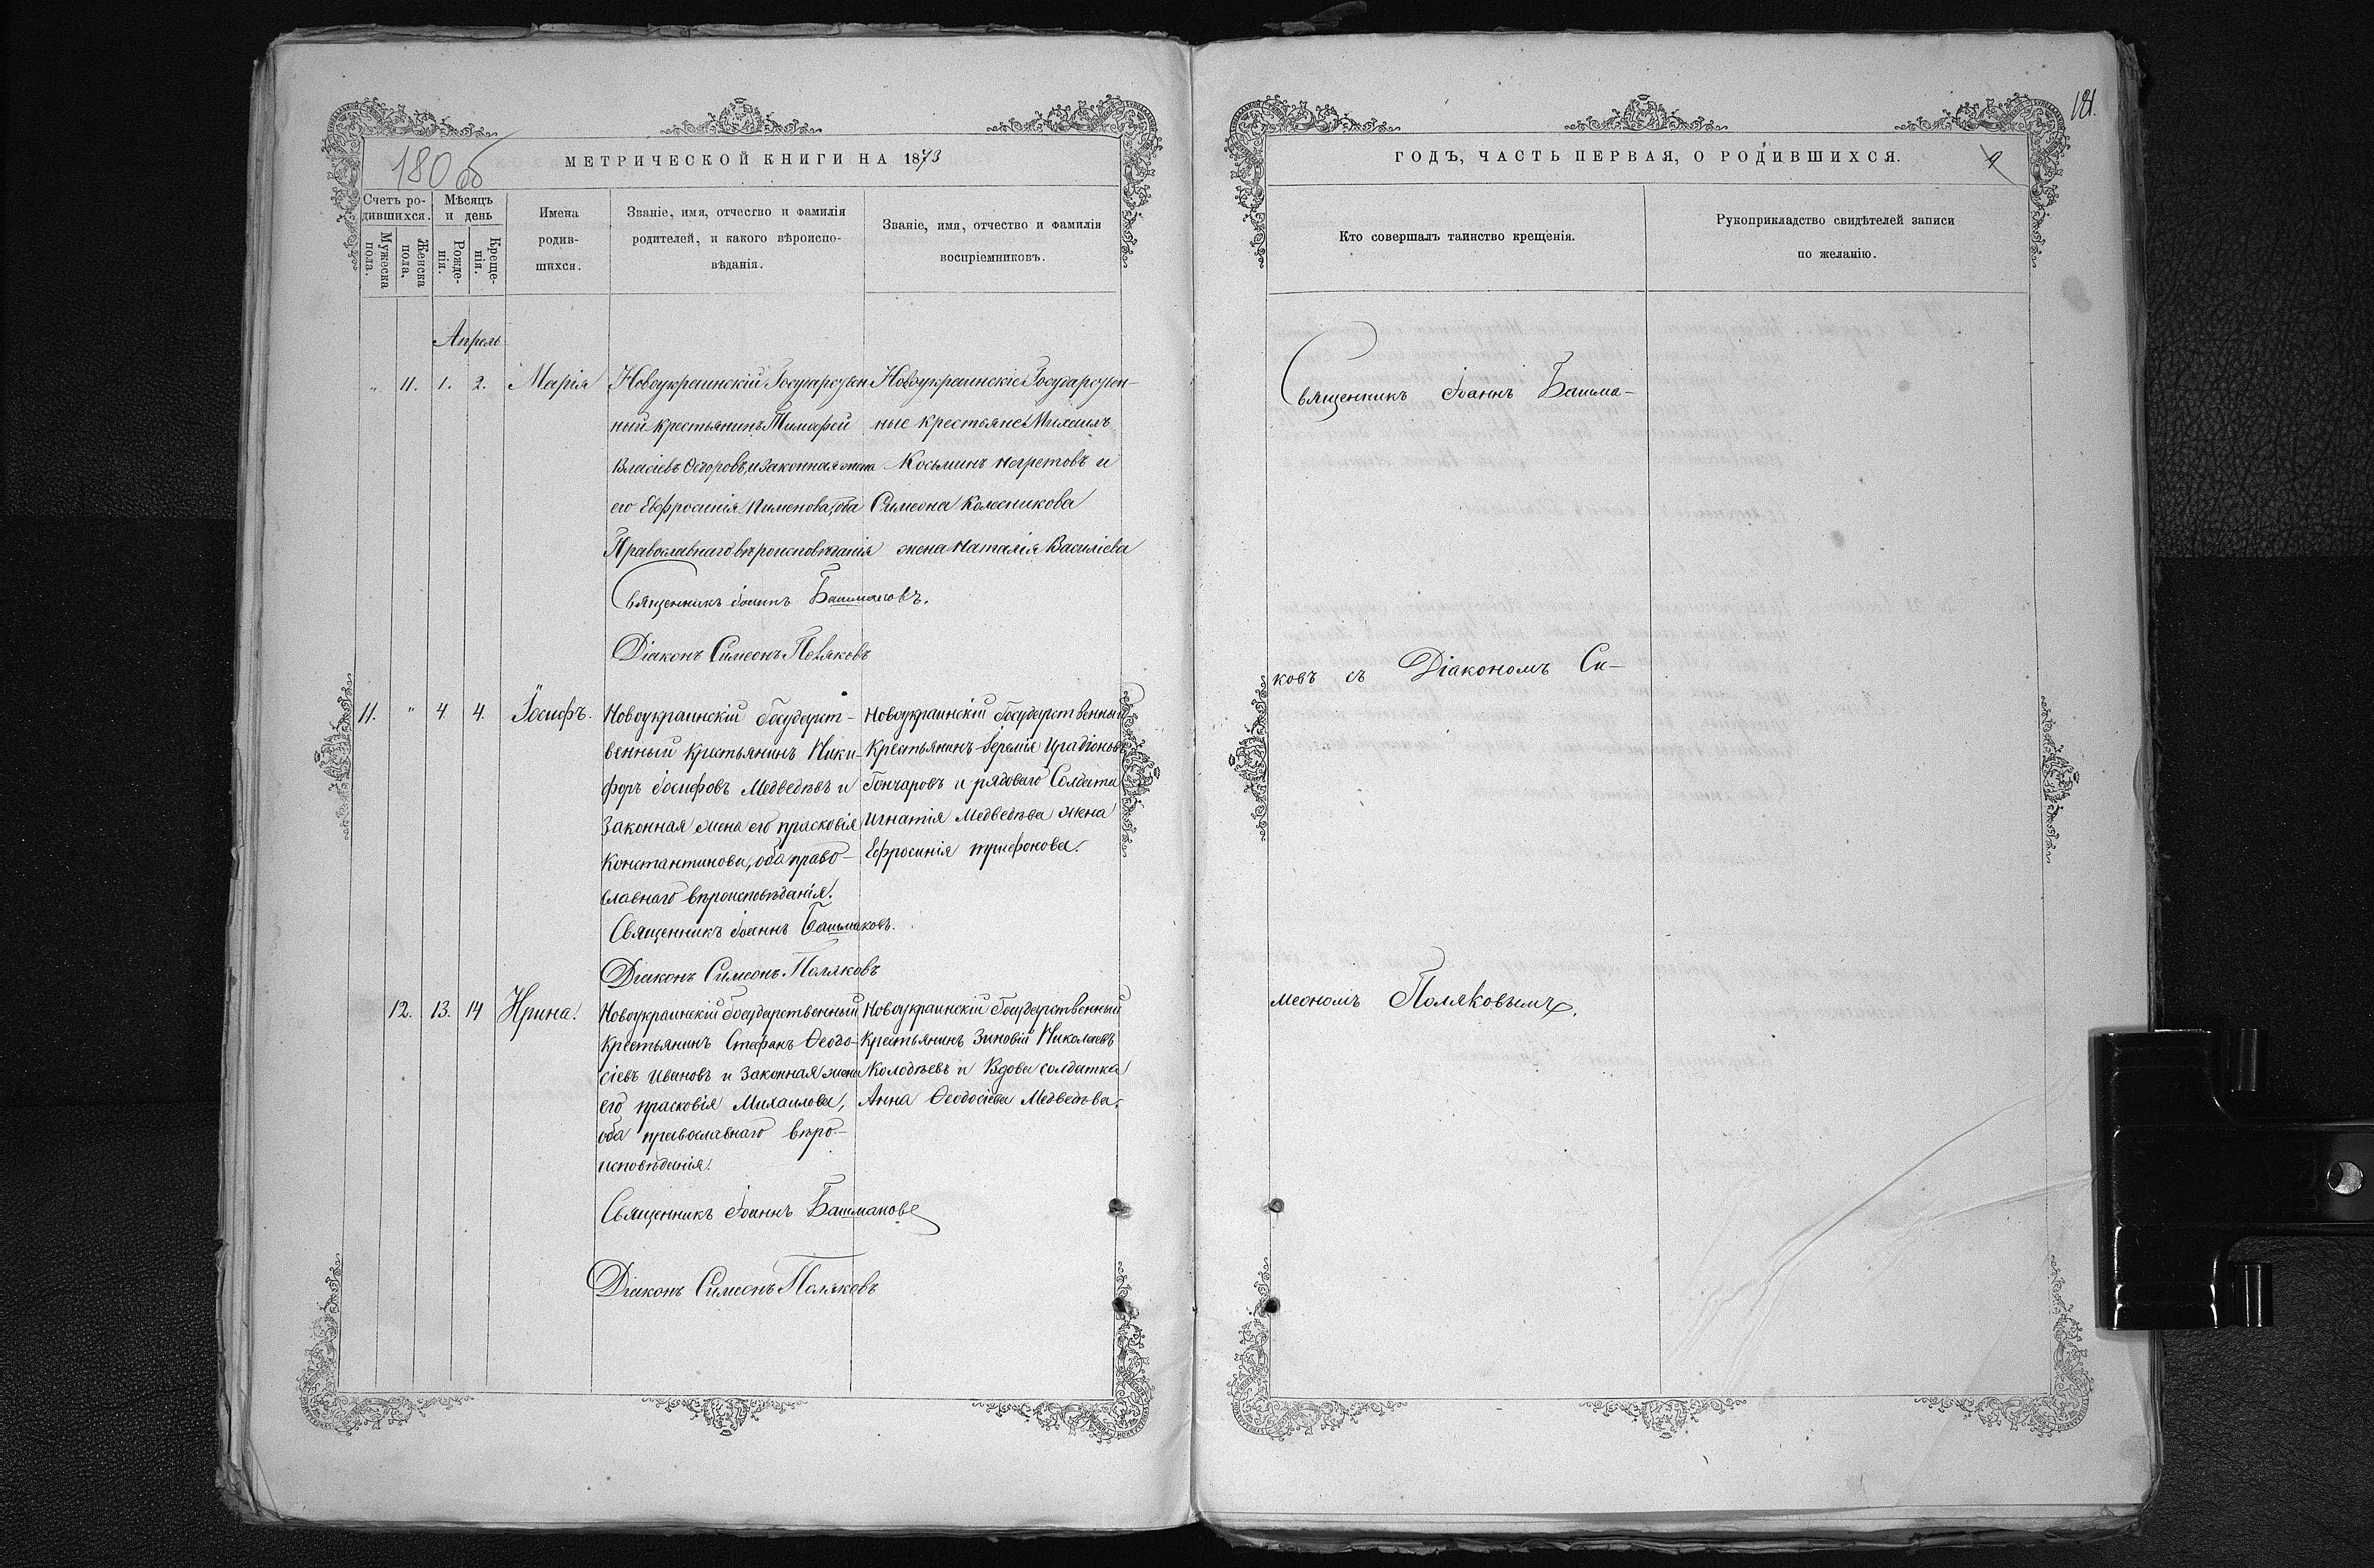 180 об
МЕТРИЧЕСКОЙ КНИГИ НА 1873
Счетъ ро-
дившихся.
Мужеска
пола.
Женска
пола.
Мѣсяцъ
и день
Рожде-
нія.
Креще-
нія.
Имена
родив-
шихся.
Званіе, имя, отчество и фамилія
родителей, и какого вѣроиспо-
вѣданія.
Званіе, имя, отчество и фамилія
воспріемниковъ.
Апрель
" 11. 1. 2. Марія
Новоукраинскій Государствен
ный крестьянинъ Тимофей
Власіевъ и законная жена
его Евфросинія Пименова, оба
Православнаго вѣроисповѣданія
Священникъ Іоаннъ Башмаковъ.
Діаконъ Симеонъ Поляковъ
Новоукраинскіе Государствен-
ные крестьяне Михаилъ
Косьминъ и
Симеона Колесникова
жена Наталія Василіева
11. " 4 4. Іосифъ.
Новоукраинскій Государст-
венный крестьянинъ Ники-
форъ Іосифовъ Медведѣвъ и
Законная жена его прасковія
Константинова, оба право-
славнаго вѣроисповѣданія.
Священникъ Іоаннъ Башмаковъ.
Діаконъ Симеонъ Поляковъ
Новоукраинскій Государственный
Крестьянинъ Іеремія
Гончаровъ и рядоваго Солдата
Игнатія Медведѣва жена
Ефросинія трифонова.
12. 13. 14 Ирина.
Новоукраинскій Государственный
Крестьянинъ Стефанъ Ѳеодо-
сіевъ Ивановъ и Законная жена
его прасковія Михаилова,
оба православнаго вѣро-
исповѣданія.
Священникъ Іоаннъ Башмаковъ
Діаконъ Симеонъ Поляковъ
Новоукраинскій Государственный
Крестьянинъ Зиновій Николаевъ
Колодѣевъ и Вдова солдатка
Анна Ѳеодосіева Медведѣва.
181.
ГОДЪ, ЧАСТЬ ПЕРВАЯ, О РОДИВШИХСЯ.
Кто совершалъ таинство крещенія.
Рукоприкладство свидѣтелей записи
по желанію.
Священникъ Іоаннъ Башма-
ковъ съ Діакономъ Си-
меономъ Поляковымъ.